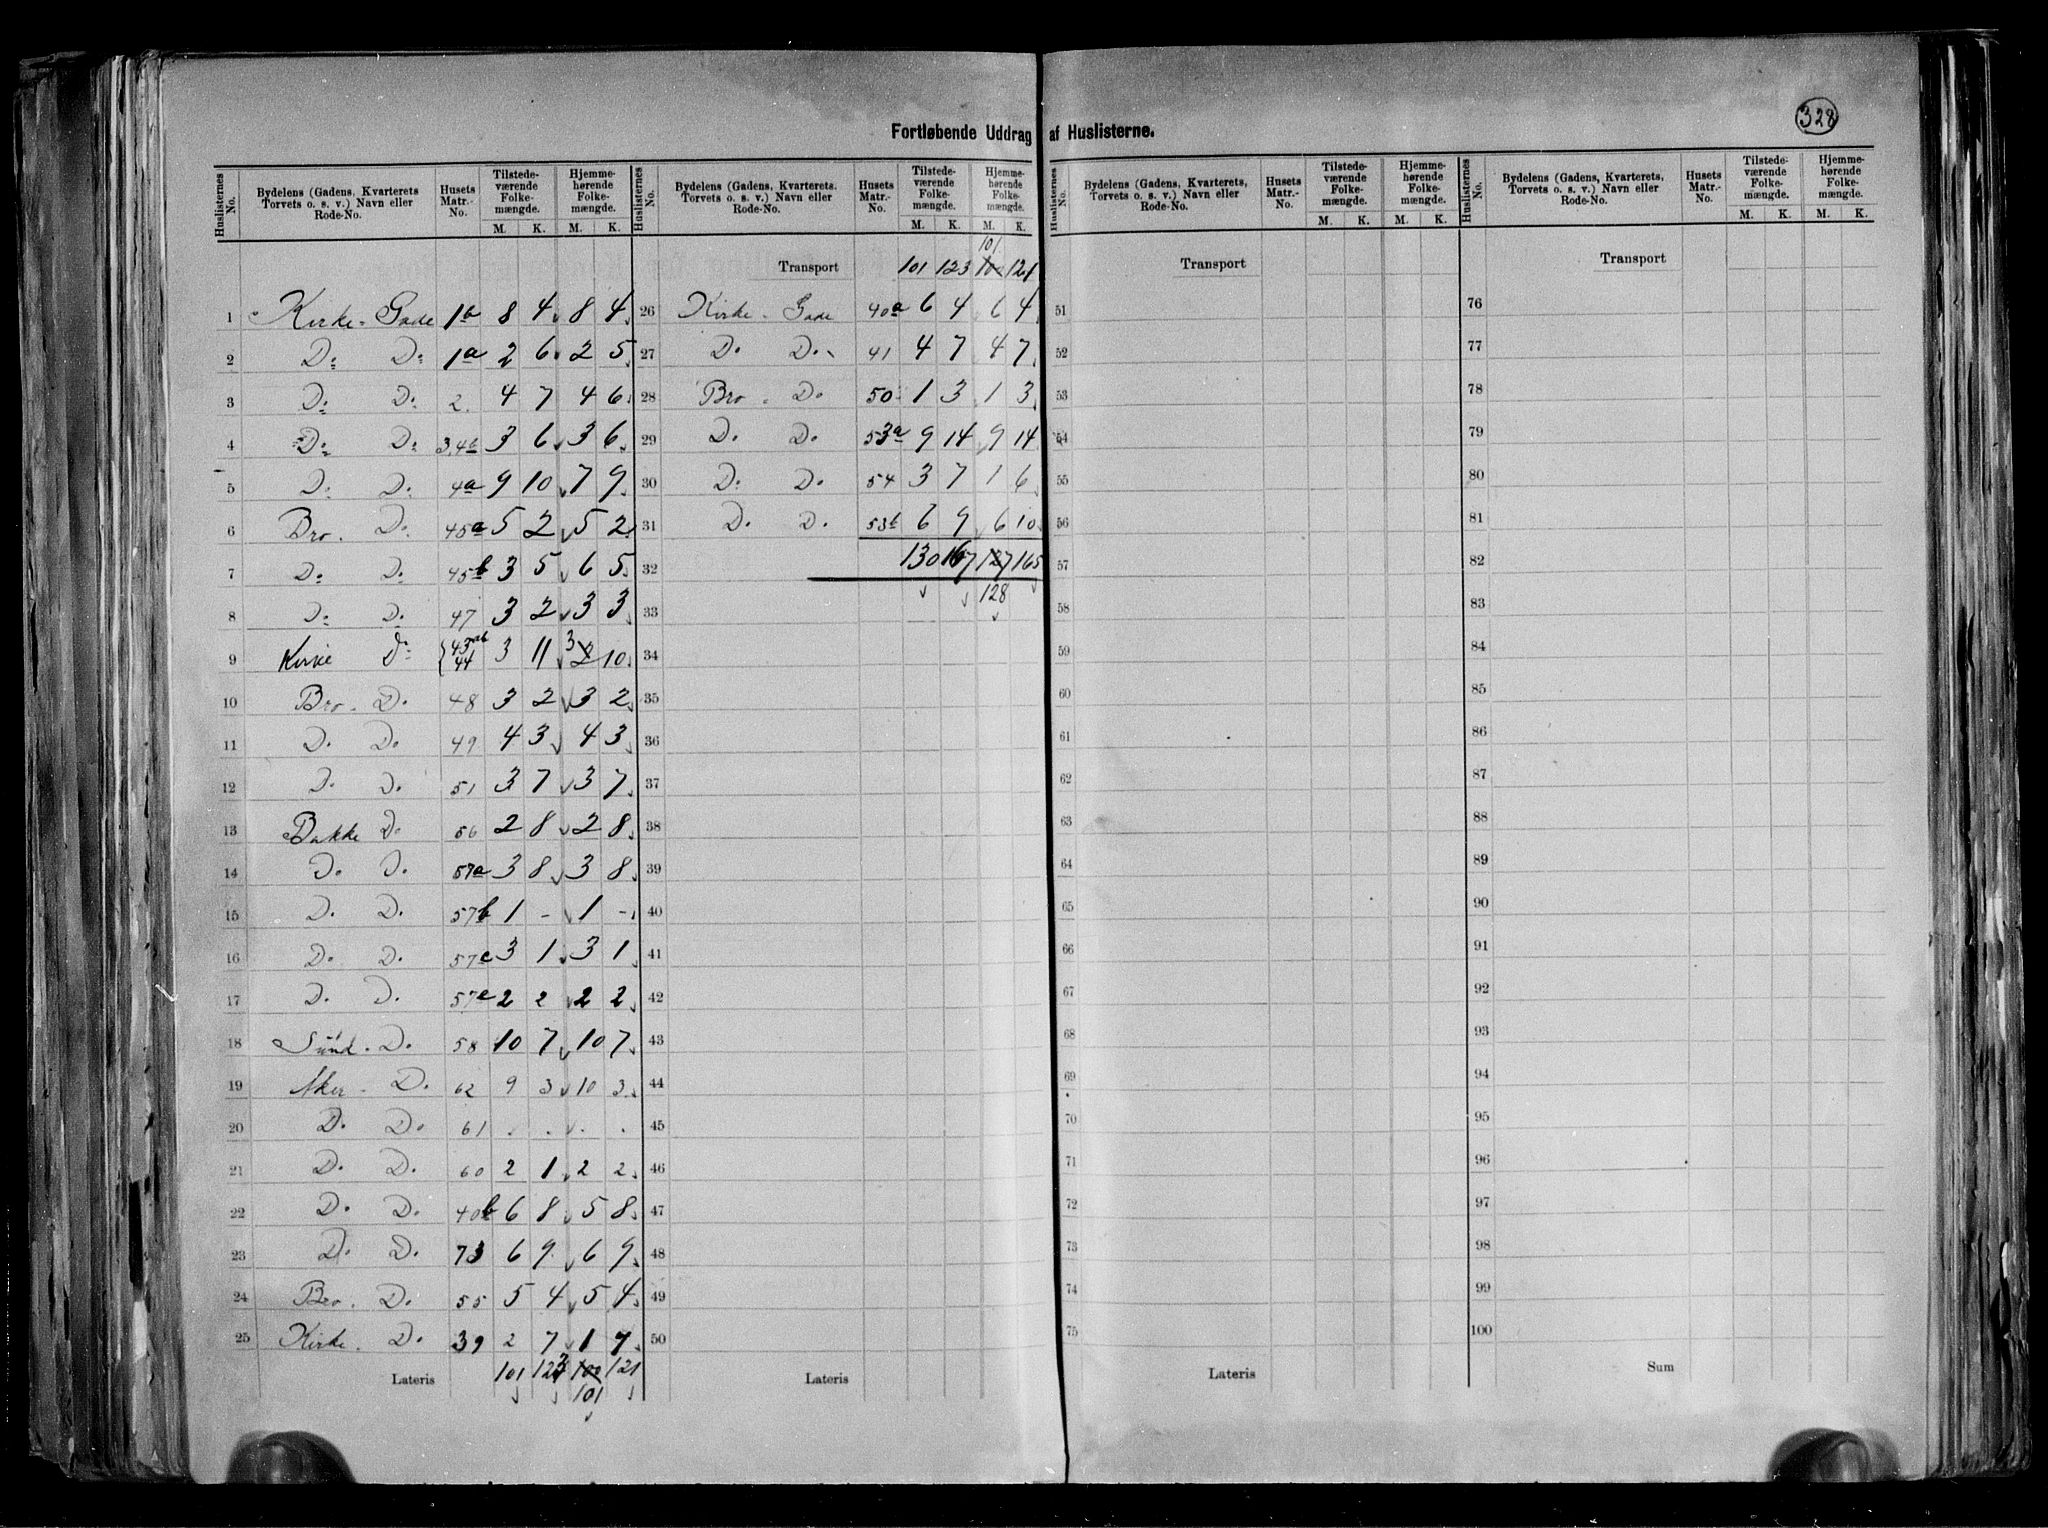 Fortløbende Uddrag af Huslisterne.
328
Huslisternes No. | Bydelens (Gadens, Kvarterets Torvets o. s. v.) Navn eller Rode-No. | Husets Matr.-No. | Tilstedeværende Folkemængde. M. K. | Hjemmehørende Folkemængde. M. K.
1 Kirke-Gade 1b 8 4 8 4
2 Do Do 1a 2 6 2 5
3 Do Do 2 4 7 4 6
4 Do Do 3,4b 3 6 3 6
5 Do Do 4a 9 10 7 9
6 Bro. Do 45a 5 2 5 2
7 Do Do 45b 3 5 6 5
8 Do Do 47 3 2 3 3
9 Kirke Do 43ab 44 3 11 3 2 10
10 Bro. Do. 48 3 2 3 2
11 Do. Do 49 4 3 4 3
12 Do. Do. 51 3 7 3 7
13 Bakke Do 56 2 8 2 8
14 Do. Do. 57a 3 8 3 8
15 Do. Do. 57b 1 - 1 -
16 Do. Do. 57c 3 1 3 1
17 Do. Do. 57e 2 2 2 2
18 Sünd. Do. 58 10 7 10 7
19 Aker - Do. 62 9 3 10 3
20 Do. Do 61 . . . .
21 Do. Do. 60 2 1 2 2
22 Do. Do. 40b 6 8 5 8
23 Do. Do. 73 6 9 6 9
24 Bro. Do. 55 5 4 5 4
25 Kirke. Do 39 2 7 1 7
Lateris 101 123 100 121
101
Huslisternes No. | Bydelens (Gadens, Kvarterets, Torvets o. s. v.) Navn eller Rode-No. | Husets Matr.-No. | Tilstedeværende Folkemængde. M. K. | Hjemmehørende Folkemængde. M. K.
101
Transport 101 123 100 121
26 Kirke-Gade 40a 6 4 6 4
27 Do Do. 41 4 7 4 7
28 Bro. Do 50 1 3 1 3
29 Do. Do 53a 9 14 9 14
30 Do. Do 54 3 7 1 6
31 Do. Do. 53b 6 9 6 10
32 130 167 127 165
33 128
34
35
36
37
38
39
40
41
42
43
44
45
46
47
48
49
50
Lateris
Huslisternes No. | Bydelens (Gadens, Kvarterets, Torvets o. s. v.) Navn eller Rode-No. | Husets Matr.-No. | Tilstedeværende Folkemængde. M. K. | Hjemmehørende Folkemængde. M. K.
Transport
51
52
53
54
55
56
57
58
59
60
61
62
63
64
65
66
67
68
69
70
71
72
73
74
75
Lateris
Huslisternes No. | Bydelens (Gadens, Kvarterets, Torvets o. s. v.) Navn eller Rode-No. | Husets Matr.-No. | Tilstedeværende Folkemængde. M. K. | Hjemmehørende Folkemængde. M. K.
Transport
76
77
78
79
80
81
82
83
84
85
86
87
88
89
90
91
92
93
94
95
96
97
98
99
100
Sum